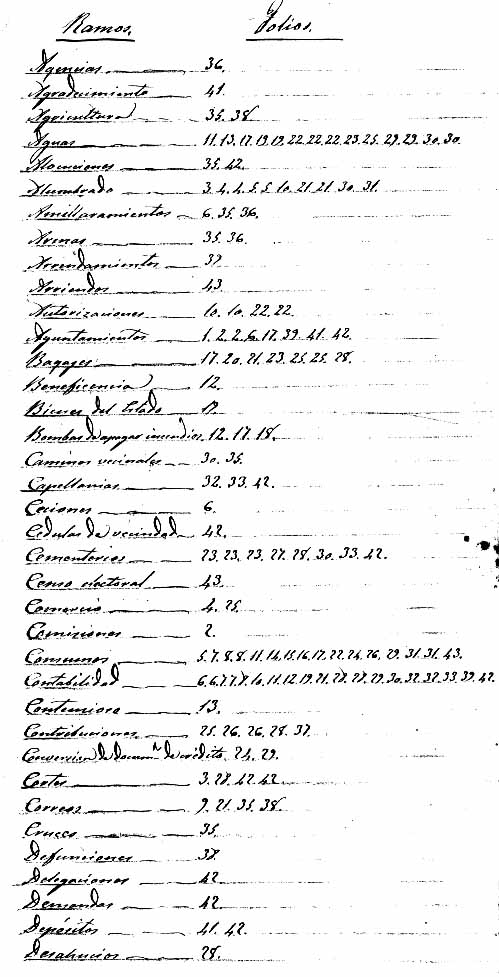 Ramos. Folios.
Agencias 36.
Agradecimiento 41.
Agricultura 35. 38.
Aguas 11. 13. 17. 19. 19. 22. 22. 22. 23. 25. 29. 29. 30. 30.
Alocuciones 35. 42.
Alumbrado 3. 4. 4. 5. 5. 10. 21. 21. 30. 31.
Amillaramientos 6. 35. 36.
Arenas 35. 36.
Arrendamientos 37
Arriendos 43.
Autorizaciones 10. 10. 22. 22.
Ayuntamientos 1. 2. 2. 6. 17. 39. 41. 42.
Bagages 17. 20. 21. 23. 25. 25. 28.
Beneficencia 12.
Bienes del Estado
Bombas de apagar incendios 12. 17. 18.
Caminos vecinales 30. 35.
Capellanias 32. 33. 42.
Cesiones 6.
Cedulas de vecindad 42.
Cementerios 23. 23. 23. 27. 28. 30. 33. 42.
Censo electoral 43.
Comercio 4. 25.
Comisiones 2.
Consumos 5. 7. 8. 8. 11. 14. 15. 16. 17. 22. 24. 26. 29. 31. 31. 43.
Contabilidad 6. 6. 7. 7. 7. 10. 11. 12. 19. 21. 27. 27. 29. 30. 32. 32. 33. 39. 42.
Contencioso 13.
Contribuciones 25. 26. 26. 28. 37.
Conversion de docum.n de crédito 24. 29.
Cortes 3. 28. 42. 42.
Correos 9. 21. 35. 38.
Cruces 35.
Defunciones 38.
Delegaciones 42
Demandas 42
Depósitos 41. 42.
Desahucios 28.